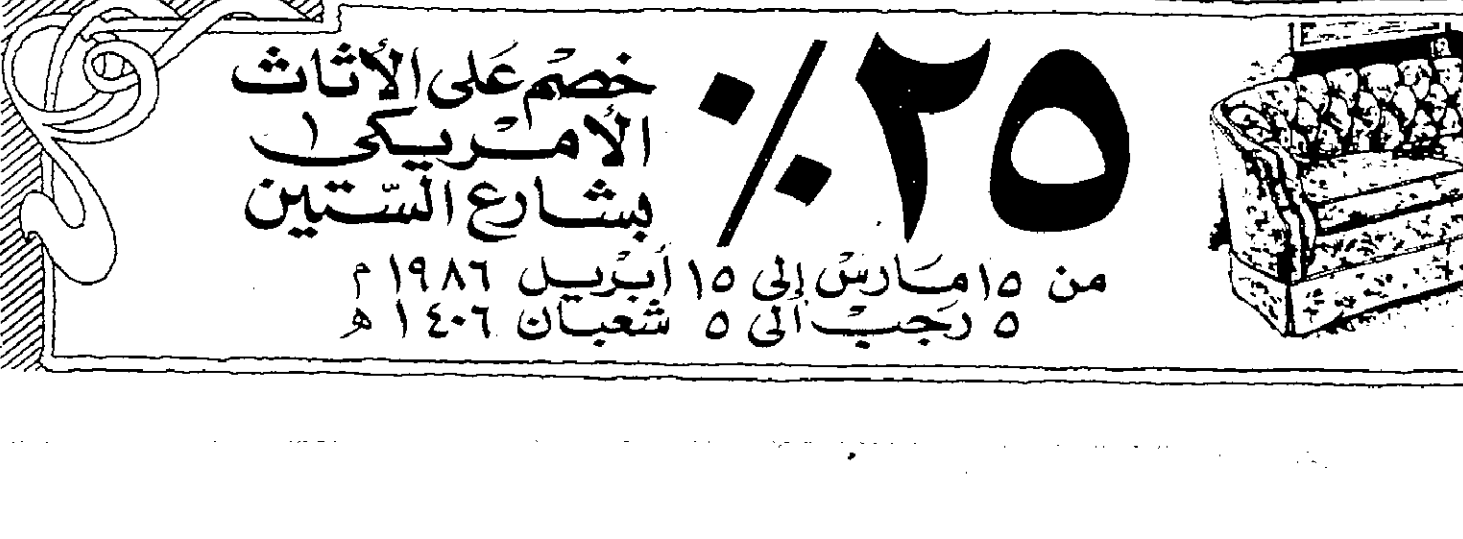 ٢٥٪
خصم على الأثاث
الأمريكي
بشارع الستين
من ١٥ مارس إلى ١٥ أبريل ١٩٨٦ م
٥ رجب الى ٥ شعبان ١٤٠٦ هـ